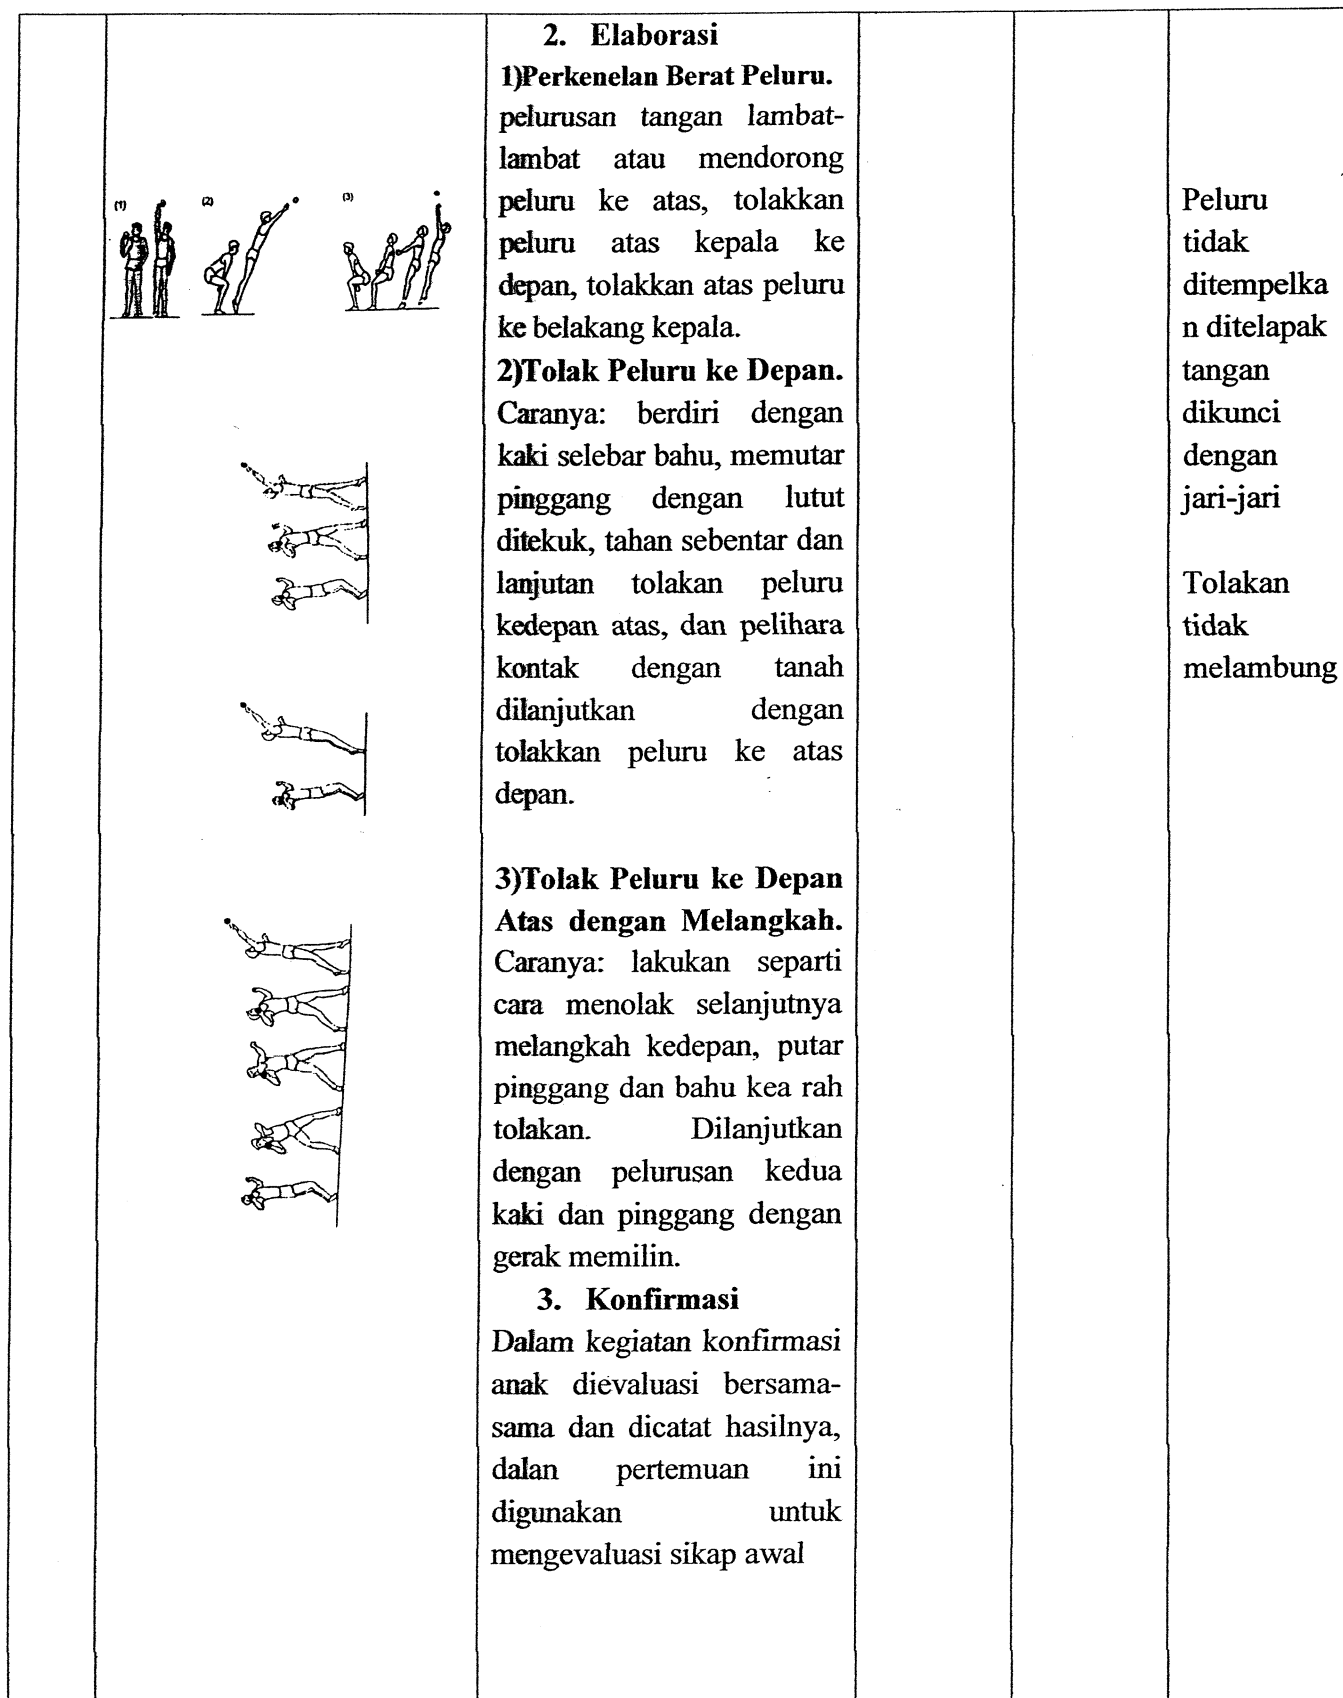 2. Elaborasi
1)Perkenelan Berat Peluru.
pelurusan tangan lambat-
lambat atau mendorong
peluru ke atas, tolakkan
peluru atas kepala ke
depan, tolakkan atas peluru
ke belakang kepala.
2)Tolak Peluru ke Depan.
Caranya: berdiri dengan
kaki selebar bahu, memutar
pinggang dengan lutut
ditekuk, tahan sebentar dan
lanjutan tolakan peluru
kedepan atas, dan pelihara
kontak dengan tanah
dilanjutkan dengan
tolakkan peluru ke atas
depan.
3)Tolak Peluru ke Depan
Atas dengan Melangkah.
Caranya: lakukan separti
cara menolak selanjutnya
melangkah kedepan, putar
pinggang dan bahu kea rah
tolakan. Dilanjutkan
dengan pelurusan kedua
kaki dan pinggang dengan
gerak memilin.
3. Konfirmasi
Dalam kegiatan konfirmasi
anak dievaluasi bersama-
sama dan dicatat hasilnya,
dalan pertemuan ini
digunakan untuk
mengevaluasi sikap awal
(1) (2) (3)
Peluru
tidak
ditempelka
n ditelapak
tangan
dikunci
dengan
jari-jari
Tolakan
tidak
melambung